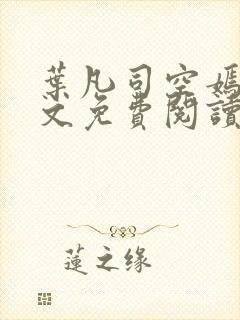 葉凡司空嫣
文免費閱讀
蓮之缘